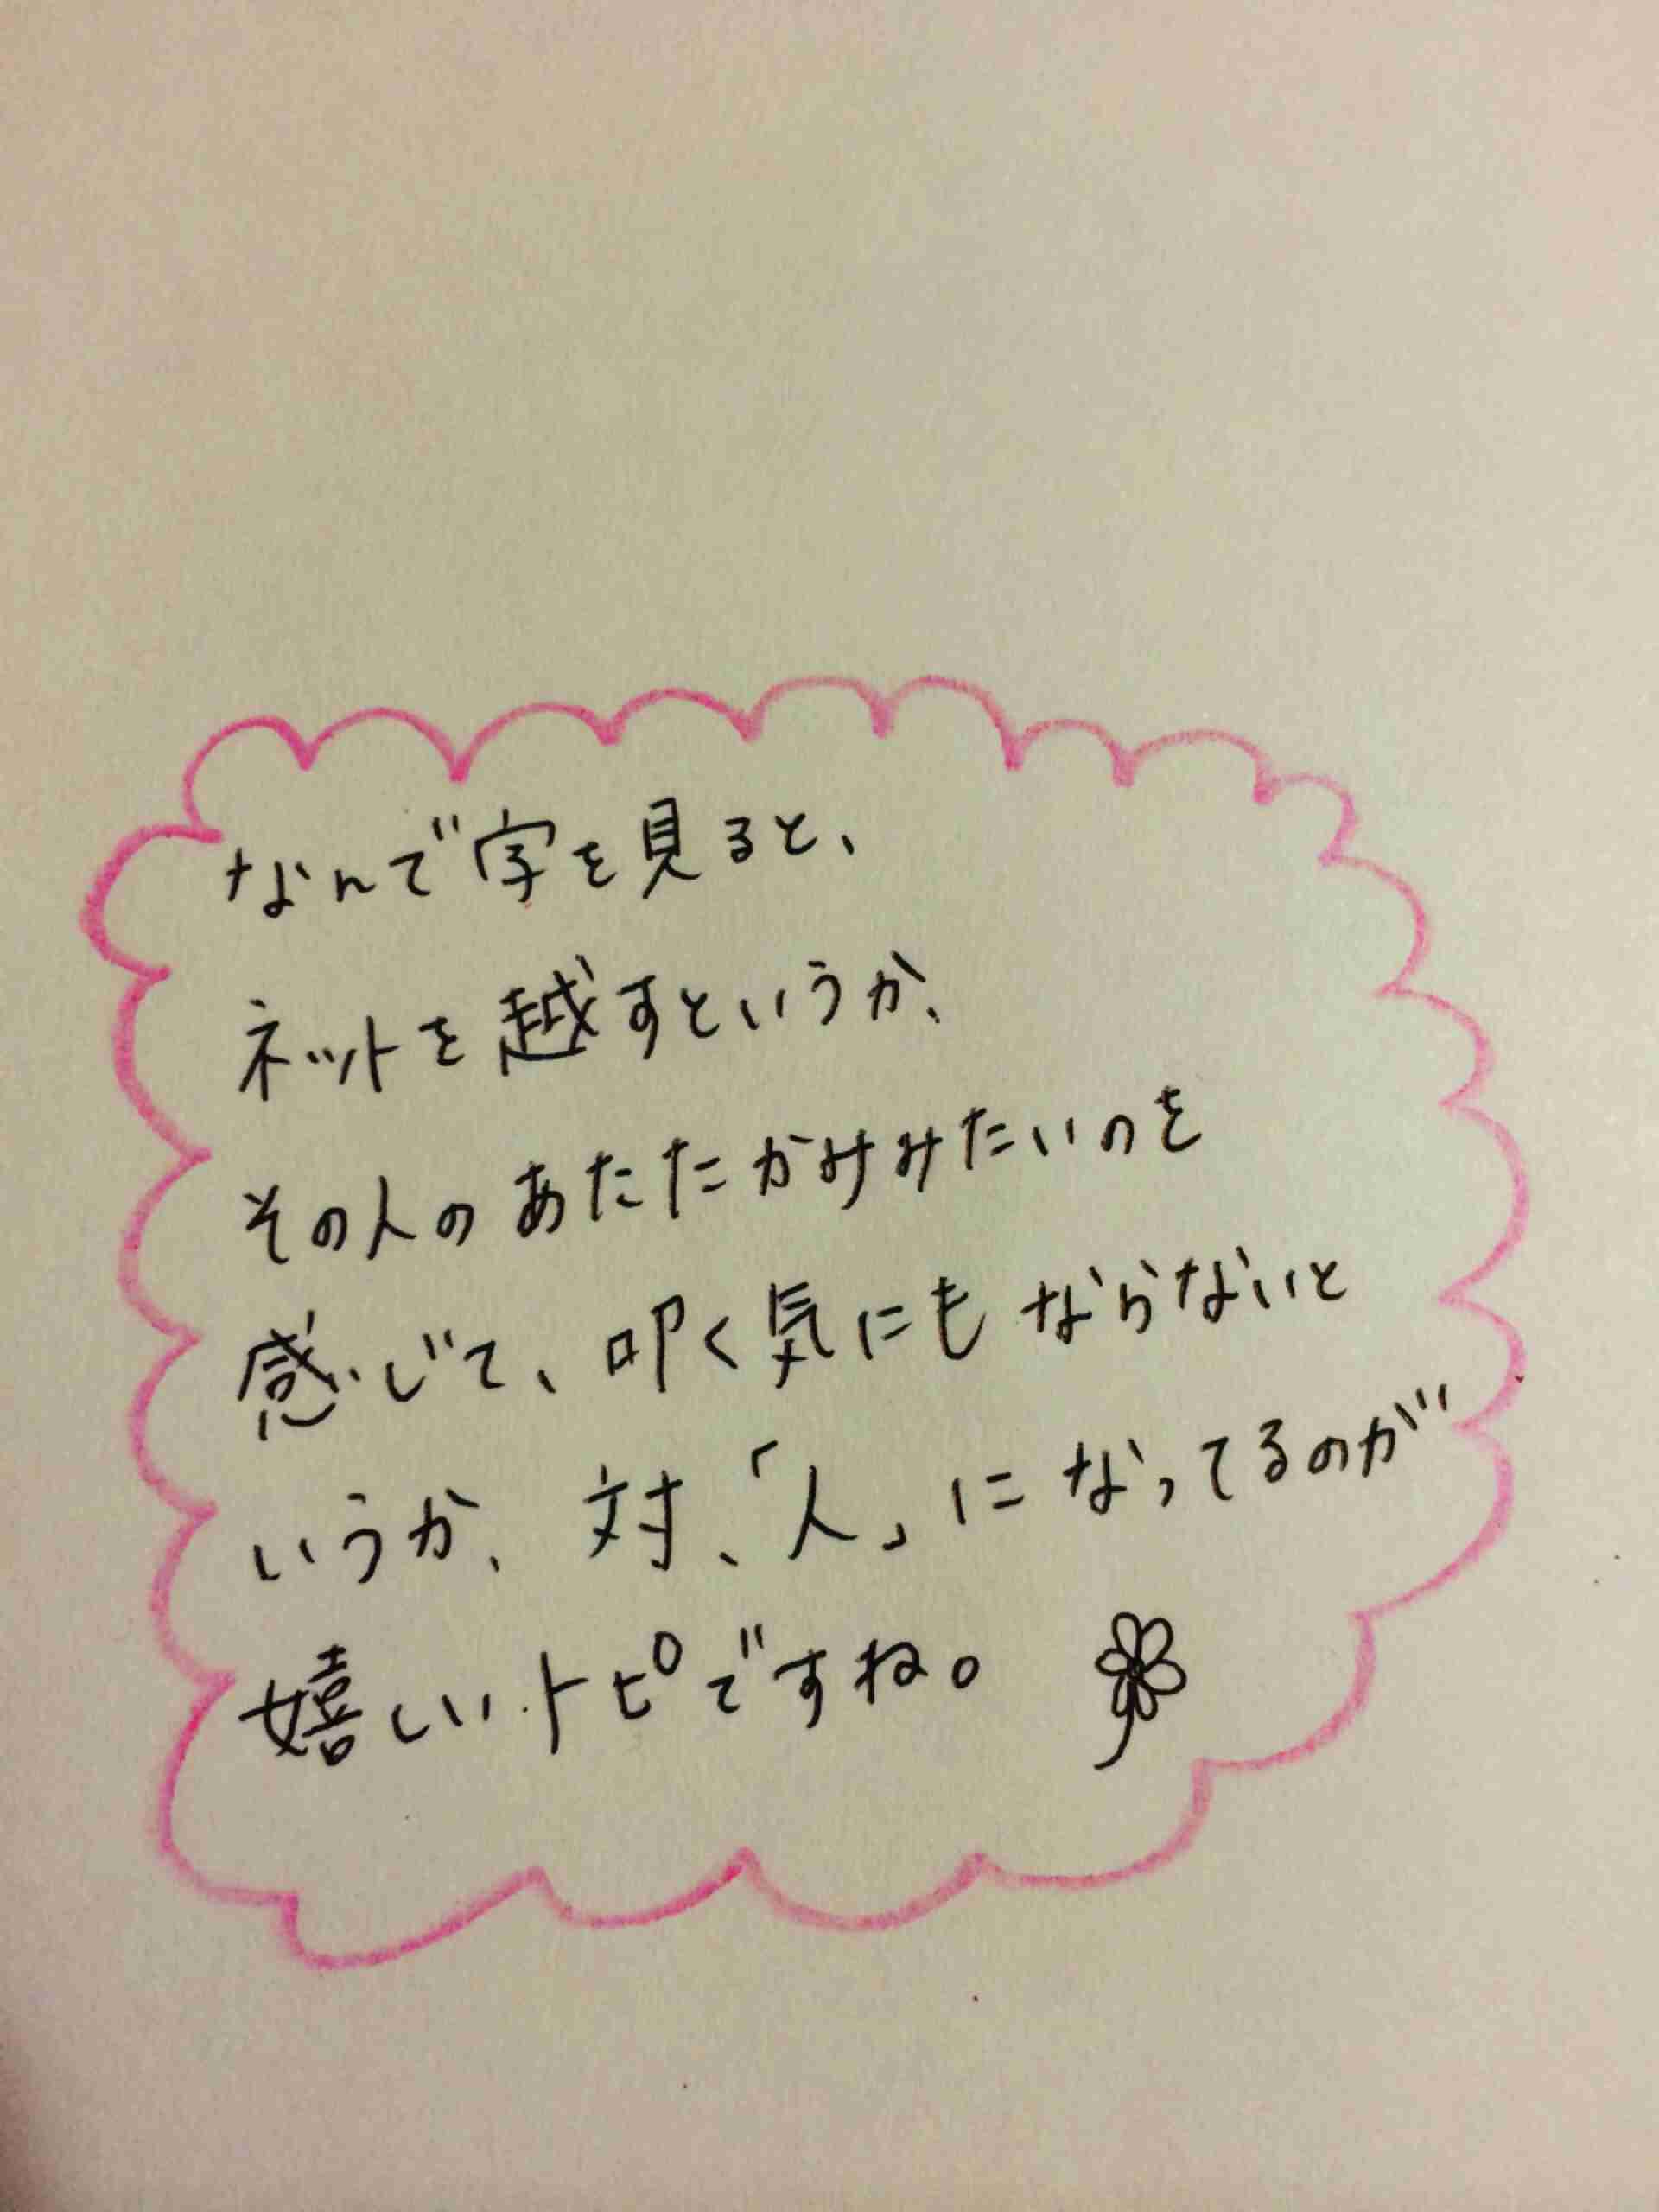 なんで字を見ると、
ネットを越すというか、
その人のあたたかみみたいのを
感じて、叩く気にもならないと
いうか、対、「人」になってるのが
嬉しいトピですね。